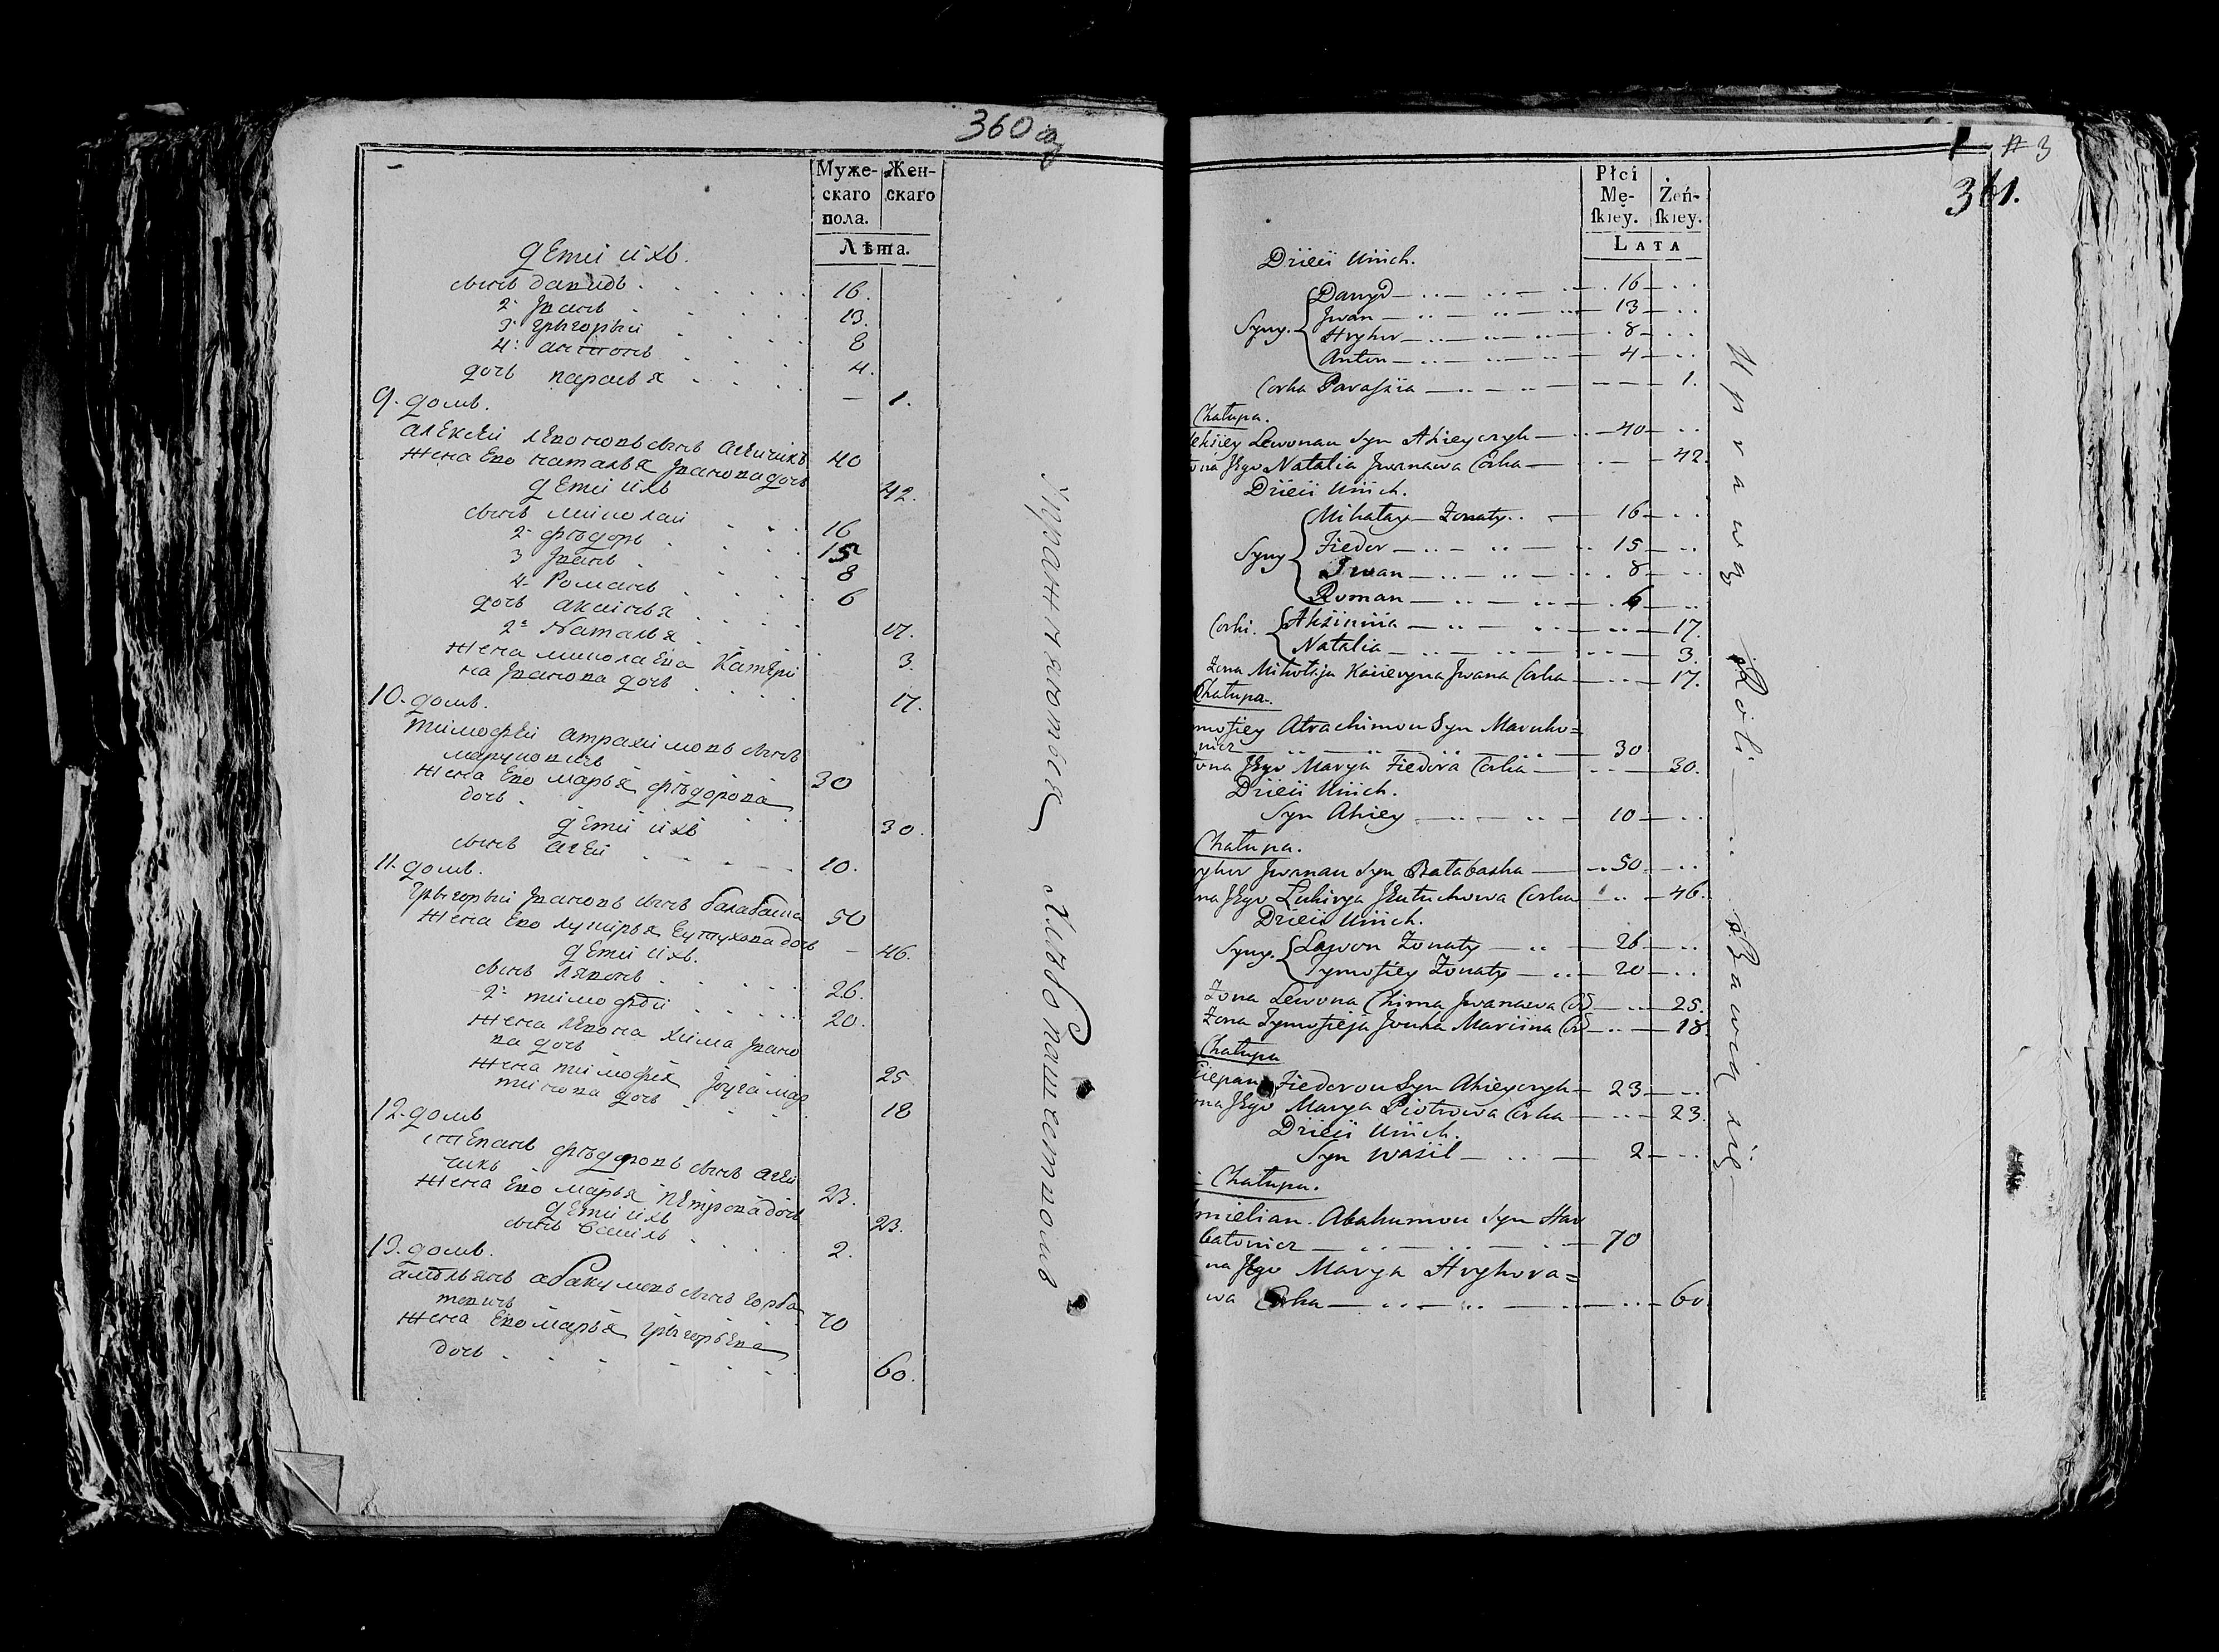 360 об
Муже-
скаго
пола.
Жен-
скаго
Лѣта.
дети ихъ.
сынъ давидъ 16.
2. Iванъ 13.
3. грыгорыи 8
4. антонъ 4.
дочь парасья — 1.
9. домъ.
алексеи левоновъ сынъ агеичикъ 40
жена ево наталья Iванова дочь 42.
дети ихъ
сынъ миколаи 16
2. фѣдоръ 15
3 Iванъ 8
4. Романъ 6
дочь аксинья 17.
2. Наталья 3.
жена миколаева Катери
на Iванова дочь 17.
10. домъ.
тимофеи атрахимовъ сынъ
маруковичъ 30
жена ево марья фѣдорова
дочь 30.
дети ихъ
сынъ агеи 10.
11. домъ.
грыгорыи Iвановъ сынъ балабашка 50
жена ево лукирья еутухова дочь — 46.
дети ихъ.
сынъ лявонъ 26.
2. тимофѣи 20.
жена левона хима Iвано
ва дочь 25
жена тимофея мар
тинова дочь 18
12. домъ
степанъ фѣдоровъ сынъ агеи
чикъ 23.
жена ево марья петрова дочь 23.
дети ихъ
сынъ василь 2.
13. домъ.
амѣльянъ абакумовъ сынъ горба
товичъ 70
жена ево марья грыгорьева
дочь 60.
Упражняются Хлебопашествомъ
# 3
361.
Płci
Mę-
ſkiey.
Żeń-
ſkiey.
LATA
Dzieci Unich.
Syny. Danyd 16
Jwan 13
Hryhor 8
Anton 4
Corka Paraſzia 1.
Chałupa.
leksiey Lewonau Syn Ahieyczyk 40
ona Jego Natalia Jwanawa Corka 42.
Dzieci Unich.
Syny Mikałay Zonaty 16
Fiedor 15
Jwan 8
Roman 6
Corki. Aksinnia 17.
Natalia 3.
Zona Mikołaja Kacieryna Jwana Corka 17.
Chałupa.
mofiey Atrachimou Syn Maruko=
wicz 30
ona Jego Marya Fiedora Corka 30.
Dzieci Unich.
Syn Ahiey 10
Chałupa.
yhor Jwanau Syn Bałabaszka 50
na Jego Lukirya Jeutuchowa Corka 46.
Dzieci Unich.
Syny. Lawon Zonaty 26
Tymofiey Zonaty 20
Zona Lewona Chima Jwanawa Cor 25.
Zona Tymofieja Jouha Marcina Cor 18
Chałupa
ciepan Fiedorou Syn Ahieyczyk 23
ona Jego Marya Piotrowa Corka 23.
Dzieci Unich.
Syn Wasil 2
Chałupa.
mielian Abakumou Syn Har
batowicz 70
na Jego Marya Hryhora=
wa Corka 60
Uprawą Roli Bawią się